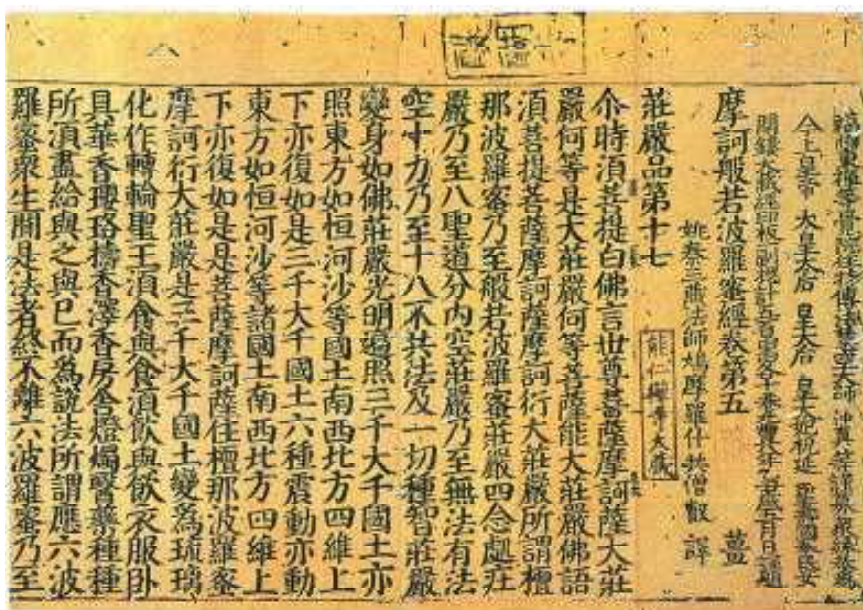 福州東禪等覺院住持傳法慧空大師 沖真 等謹募眾緣恭為
今上皇帝 太皇太后 皇太后 皇太妃祝延 聖壽國泰民安
開鏤大藏經印板一副總計五百 函各十卷元豐 年 歲 月 日謹題
摩訶般若波羅蜜經卷第五 薑
姚秦三藏法師鳩摩羅什共僧叡 譯
莊嚴品第十七
能仁禪寺大藏
尒時湏菩提白佛言世尊菩薩摩訶薩大莊
嚴何等是大莊嚴何等菩薩能大莊嚴佛語
湏菩提菩薩摩訶薩摩訶衍大莊嚴所謂檀
那波羅蜜乃至般若波羅蜜莊嚴四念處莊
嚴乃至八聖道分內空莊嚴乃至無法有法
空十力乃至十八不共法及一切種智莊嚴
變身如佛莊嚴光明遍照三千大千國土亦
照東方如恒河沙等國土南西北方四維上
下亦復如是三千大千國土六種震動亦動
東方如恒河沙等諸國土南西北方四維上
下亦復如是是菩薩摩訶薩住檀那波羅蜜
摩訶衍大莊嚴是三千大千國土變為琉璃
化作轉輪聖王湏食與食湏飲與飲衣服卧
具華香瓔珞擣香澤香房舍燈燭醫藥種種
所湏盡給與之與已而為說法所謂應六波
羅蜜眾生聞是法者終不離六波羅蜜乃至